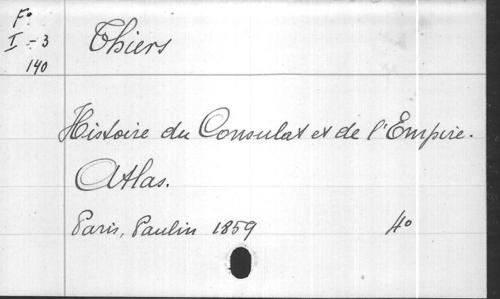 Fº
I - 3
140
Thiers
Histoire du Consulat et de l'Empire.
Atlas.
Paris, Paulin 1859 4º